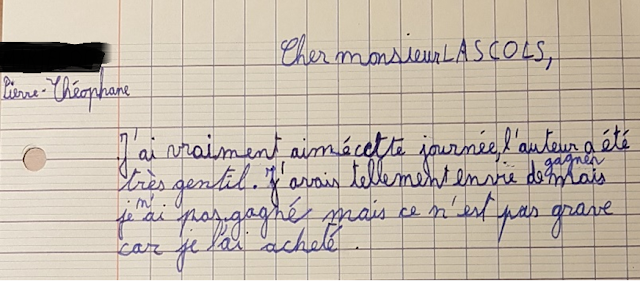 Cher monsieur LASCOLS,
Pierre-Théophane
J'ai vraiment aimé cette journée, l'auteur a été
très gentil. J'avais tellement envie de gagner mais
je n'ai pas gagné mais ce n'est pas grave
car je l'ai acheté.